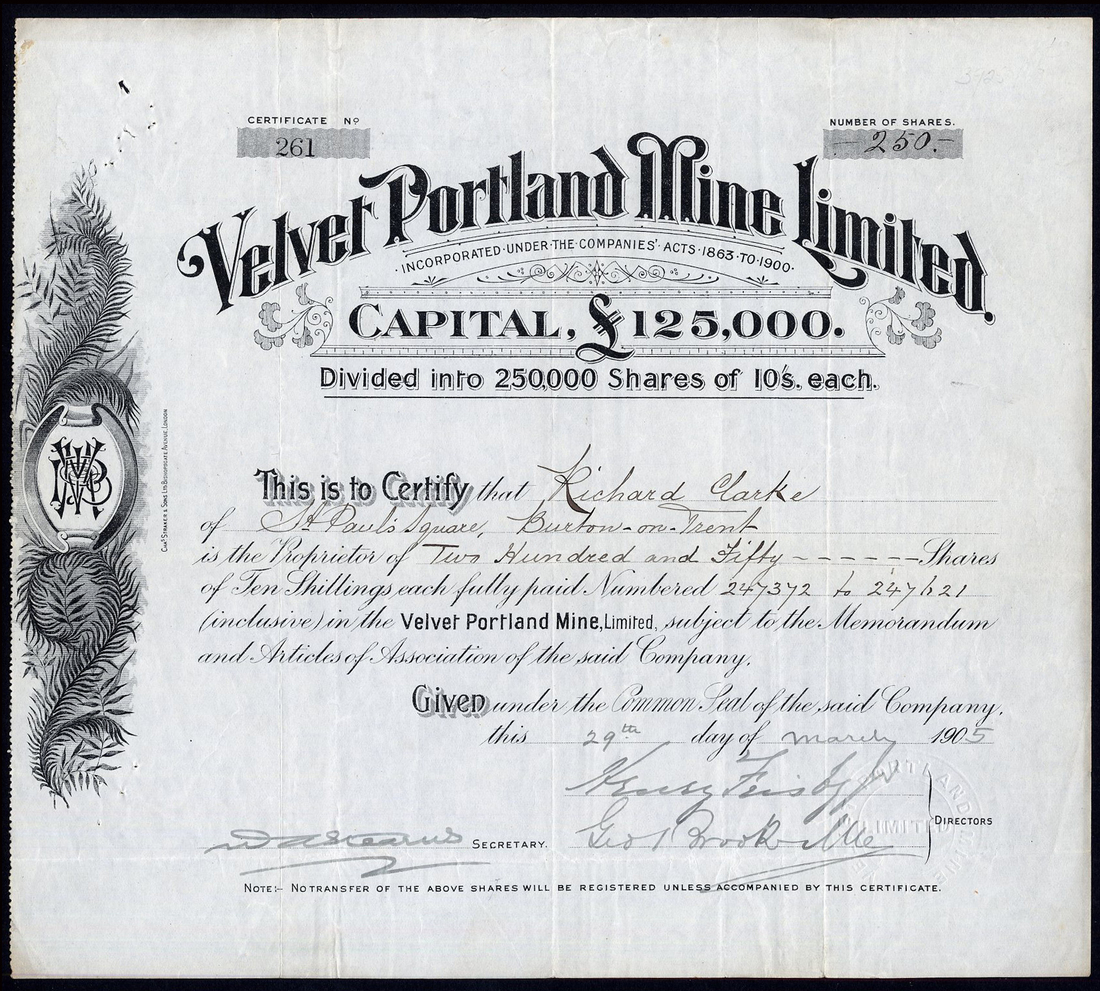 CERTIFICATE No
261
NUMBER OF SHARES.
-250.-
Velvet Portland Mine Limited.
·INCORPORATED·UNDER·THE·COMPANIES'·ACTS·1863·TO·1900·
CAPITAL, £125,000.
Divided into 250,000 Shares of 10/s. each.
This is to Certify that Richard Clarke
of St Paul's Square, Burton-on-Trent
is the Proprietor of Two Hundred and Fifty ------- Shares
of Ten Shillings each fully paid Numbered 247372 to 247621
(inclusive) in the Velvet Portland Mine, Limited, subject to the Memorandum
and Articles of Association of the said Company.
Given under the Common Seal of the said Company.
this 29th day of March 1905
DIRECTORS
SECRETARY.
NOTE:- NO TRANSFER OF THE ABOVE SHARES WILL BE REGISTERED UNLESS ACCOMPANIED BY THIS CERTIFICATE.
CHAS STRAKER & SONS LTD BISHOPSGATE AVENUE, LONDON
PORTLAND MINE
LIMITED